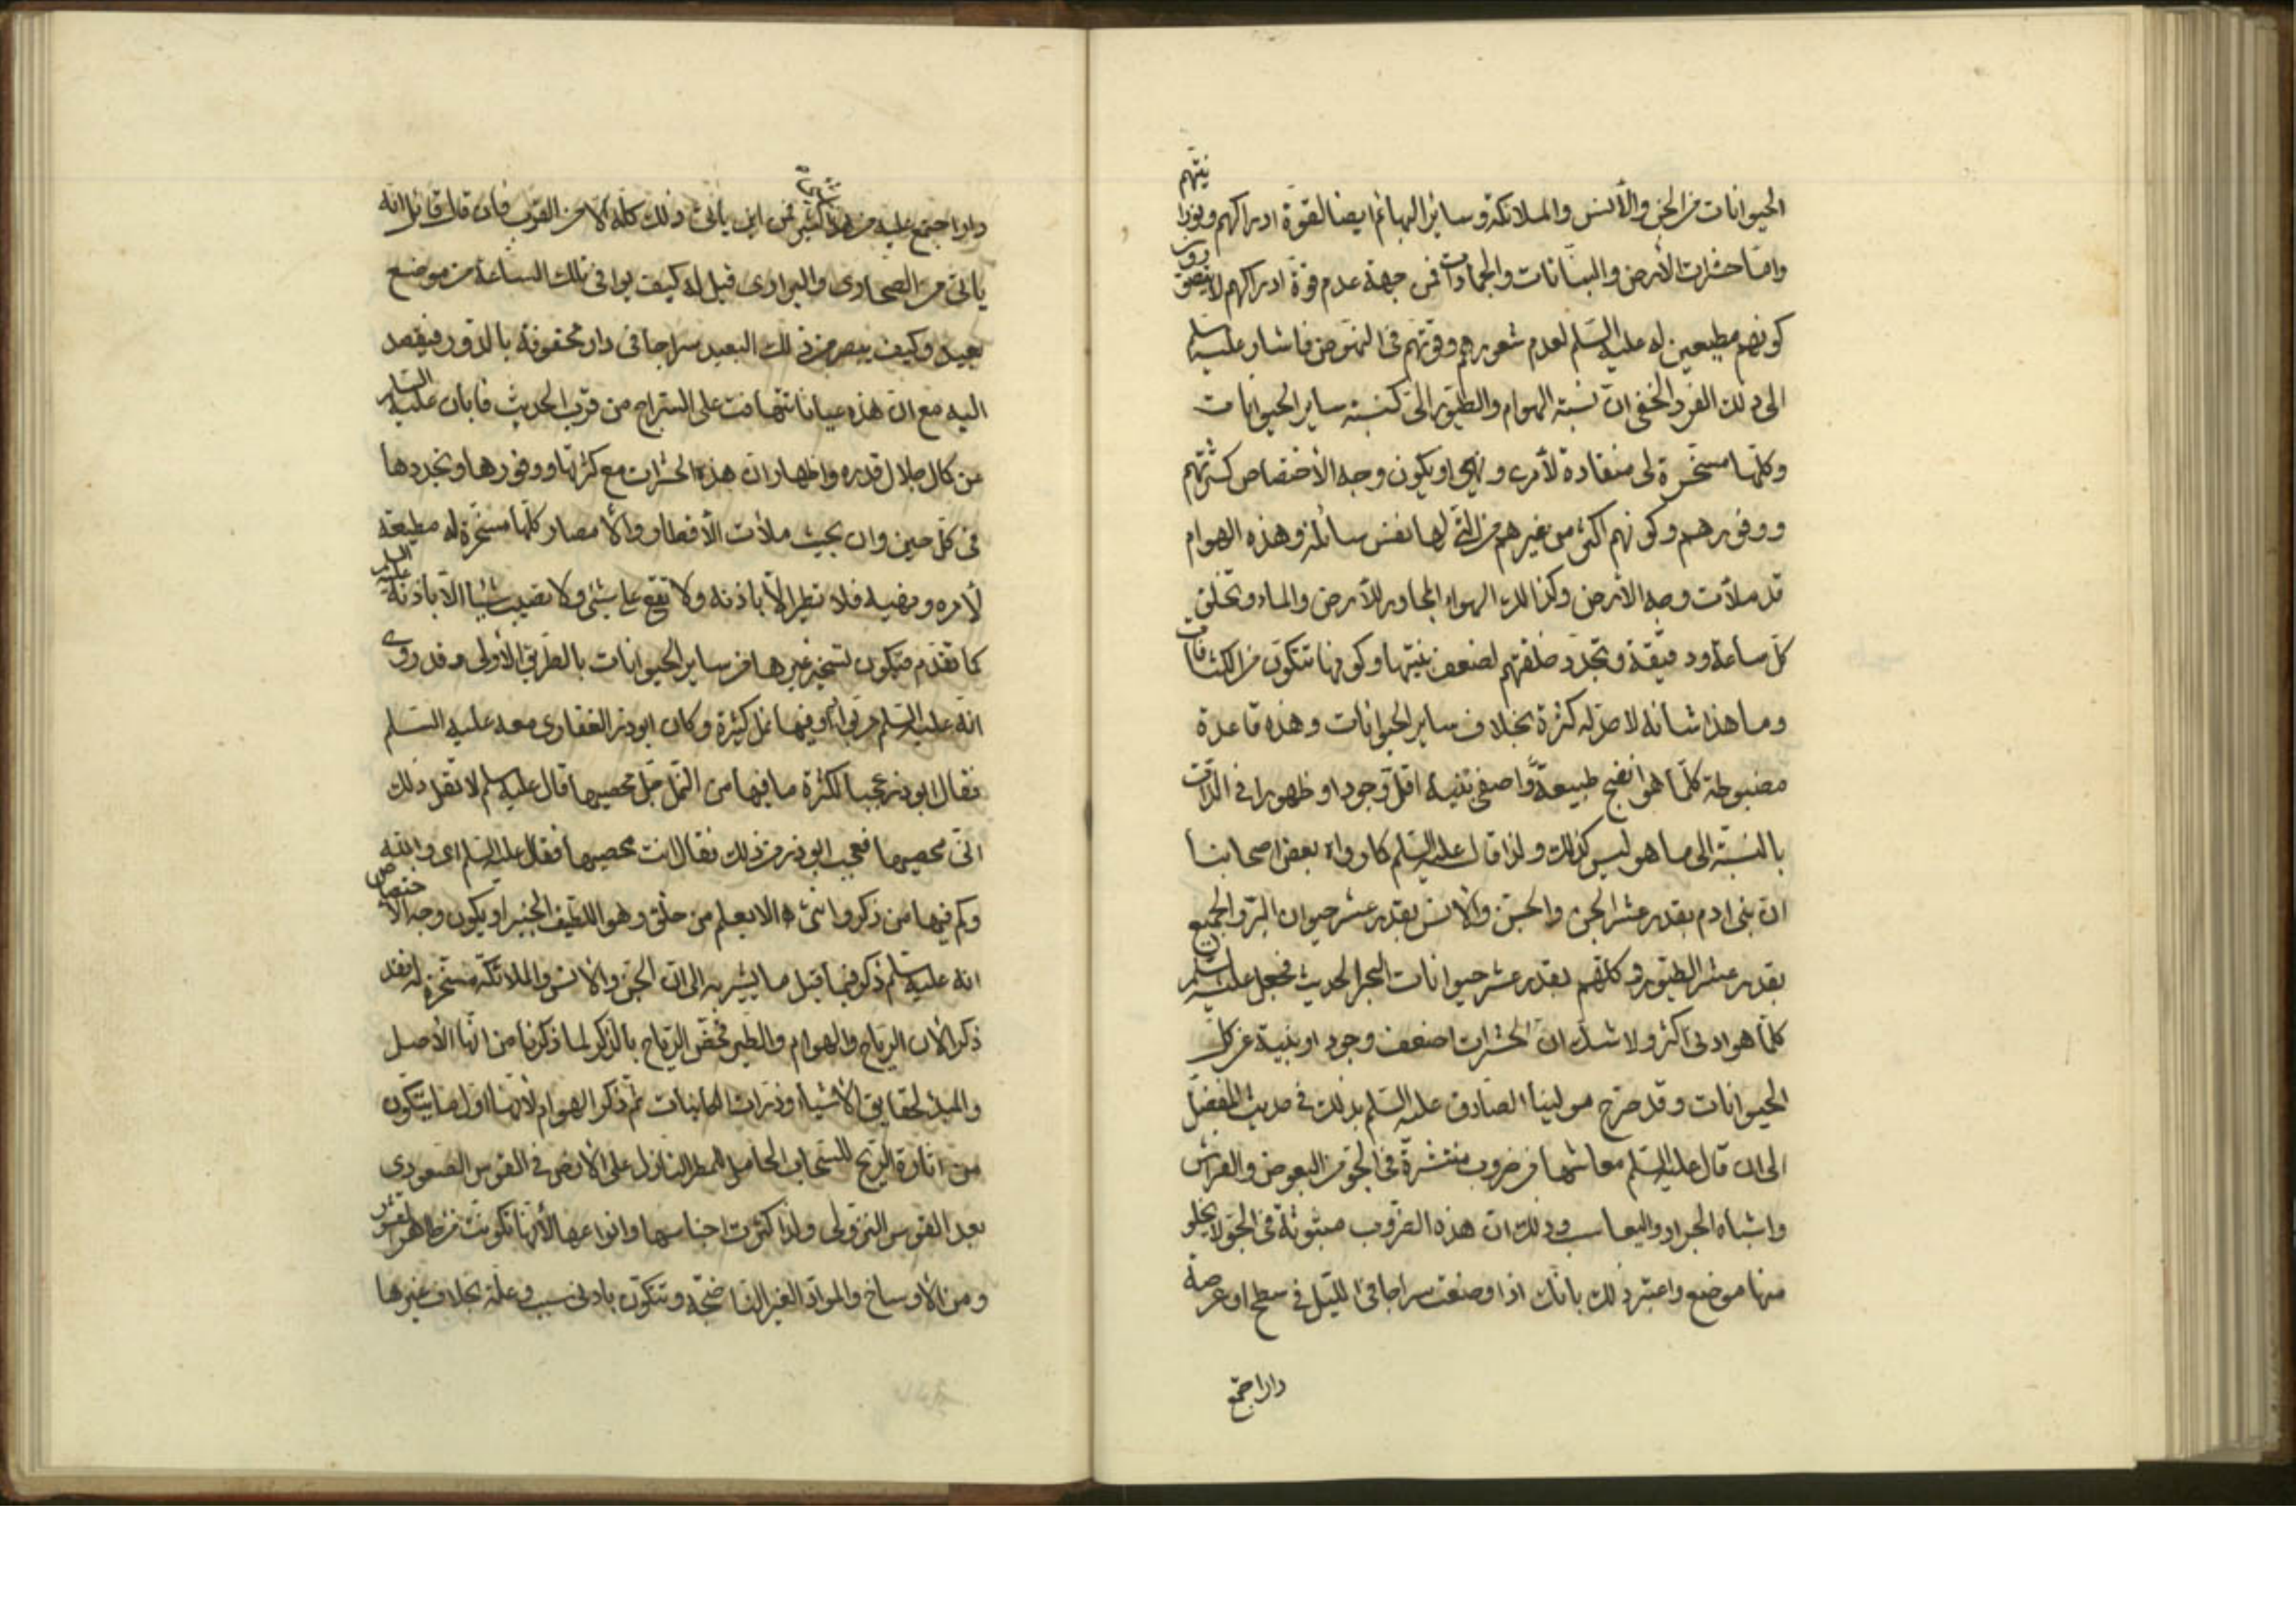 الحيوانات من الجن والأنس والملائكة وساير البهائم ايضا لقوة ادراكهم ونورا نيتهم
وامّا حشرات الأرض والنباتات والجمادات فمن جهة عدم قوة ادراكهم لا
كونهم مطيعين له عليه السّلم لعدم شعورهم وقوتهم في النهوض فاشار عليه السلم
الى ذلك الفرد الخفي ان نسبة الهوام والطيور الىّ كنسبة ساير الحيوانات
وكلّها مسخّرة لى منقادة لأمرى ونهيى او يكون وجه الأختصاص كثرتهم
ووفورهم وكونهم اكثر من غيرهم من التى لها نفس سائلة وهذه الهوام
قد ملأت وجه الارض وكذا لك الهواء المجاور للأرض والماء وتخلق
كلّ ساعة ودقيقة وتجدّد خلقتهم لضعف بنيتها وكونها تتكوّن من الكثافات
وما هذا شانه لا كثرة بخلاف ساير الحيوانات وهذه قاعدة
مضبوطة كلّما هو انضج طبيعة واصفى بنية اقلّ وجودا وظهورا في الذّات
بالنسبة الى ما هو ليس كذلك ولذا قال عليه السّلم كما رواه بعض اصحابنا
انّ بنى ادم بقدر عشر الجن والجنّ والأنس بقدر عشر حيوان البرّ والجميع
بقدر عشر الطيور وكلّهم بقدر عشر حيوانات البحر الحديث فجعل عليه السلم
كلّما هو ادنى اكثر ولا شك انّ الحشرات اضعف وجودا وبنية عن كل
الحيوانات وقد صرّح مولينا الصّادق عليه السّلم بذلك في حديث المفضّل
الى ان قال عليه السّلم معاشها من ضروب منتشرة في الجوّ من البعوض والفراش
واشباه الجراد واليعاسيب وذلك انّ هذه الضّروب مبثوثة في الجوّ لا يخلو
منها موضع واعتبر ذلك بانّك اذا وضعت سراجا في اللّيل في سطح او عرصة
دارا جتمع
دار اجتمع عليه من هذا شيئ كثير فمن اين ياتى ذلك كلّه الا من القرب فان قال قائل انّه
ياتى من الصحارى والبرارى قيل له كيف يوافى تلك الساعة من موضع
بعيد وكيف يبصر من ذلك البعيد سراجا في دار محفوفة بالدّور فيقصد
اليه مع ان هذه عيانا تتهافت على السّراج من قرب الحديث فابان عليه السلم
عن كمال جلال قدره واظهار ان هذه الحشرات مع كثرتها ووفورها وتجددها
في كلّ حين وان بحيث ملأت الأقطار والأمصار كلّها مسخّرة له مطيعة
لأمره ونهيه فلا تطير الاّ باذنه ولا تقع على شيئ ولا تصيب شيئا الاّ باذنه عليه السلم
كما تقدّم فيكون تسخير غيرها من ساير الحيوانات بالطّريق الأولى وقد روى
انّه عليه السّلم مرّ بواد وفيها نمل كثيرة وكان ابوذر الغفارى معه عليه السّلم
فقال ابوذر عجبا لكثرة ما فيها من النّمل جلّ محصيها قال عليه السلم لا تقل ذلك
انّى محصيها فعجب ابوذر من ذلك فقال انت محصيها فقال عليه السّلم اى والله
وكم فيها من ذكر وانثى الا يعلم من خلق وهو اللطيف الخبير او يكون وجه الأختصاص
انه عليه السلم ذكر فيما قبل ما يشير به الى انّ الجنّ والأنس والملائكة مسخّرة له فقد
ذكر الأن الرّياح والهوام والطير فخصّ الرّياح بالذّكر لما ذكرنا من انّها الأصل
والمبدء لحقايق الأشياء وذرات الكاينات ثم ذكر الهوام لأنّها اوّل ما يتكوّن
من اثارة الرّيح للسّحاب الحامل للمطر النازل على الأرض في القوس الصّعودى
بعد القوس النزولى ولذا كثرت اجناسها وانواعها لأنها تكونت من ظاهر
ومن الأوساخ والموادّ الغير النّاضجة وتتكوّن بادنى سبب وعلّة بخلاف غيرها